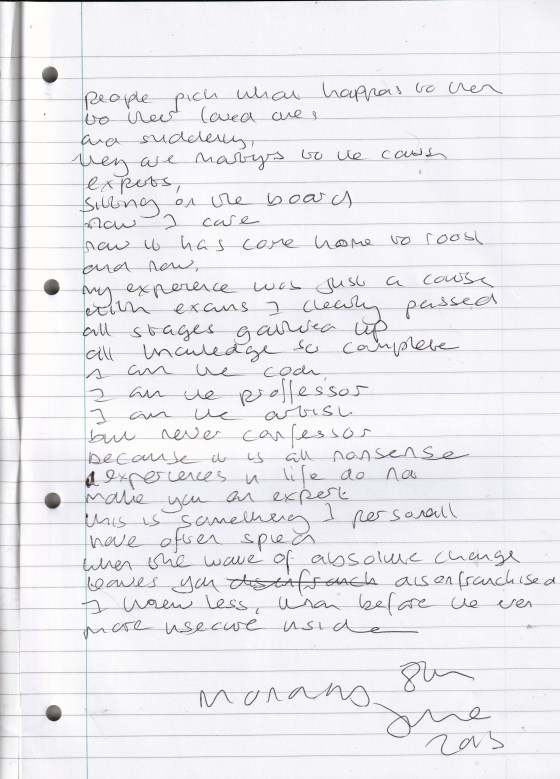 people pick what happens to them
to their loved ones
and suddenly,
they are martyrs to the cause
experts,
sitting on the board
now I care
now it has come home to roost
and now,
my experience was just a course
with exams I clearly passed
all stages gathered up
all knowledge so complete
I am the
I am the proffessor
I am the artist
but never confessor
because it is all nonsense
experiences in life do not
make you an expert
this is something I personall
have often
when the wave of absolute change
leaves you disenfranch disenfranchised
I knew less, than before we ever
more insecure inside
8th
June